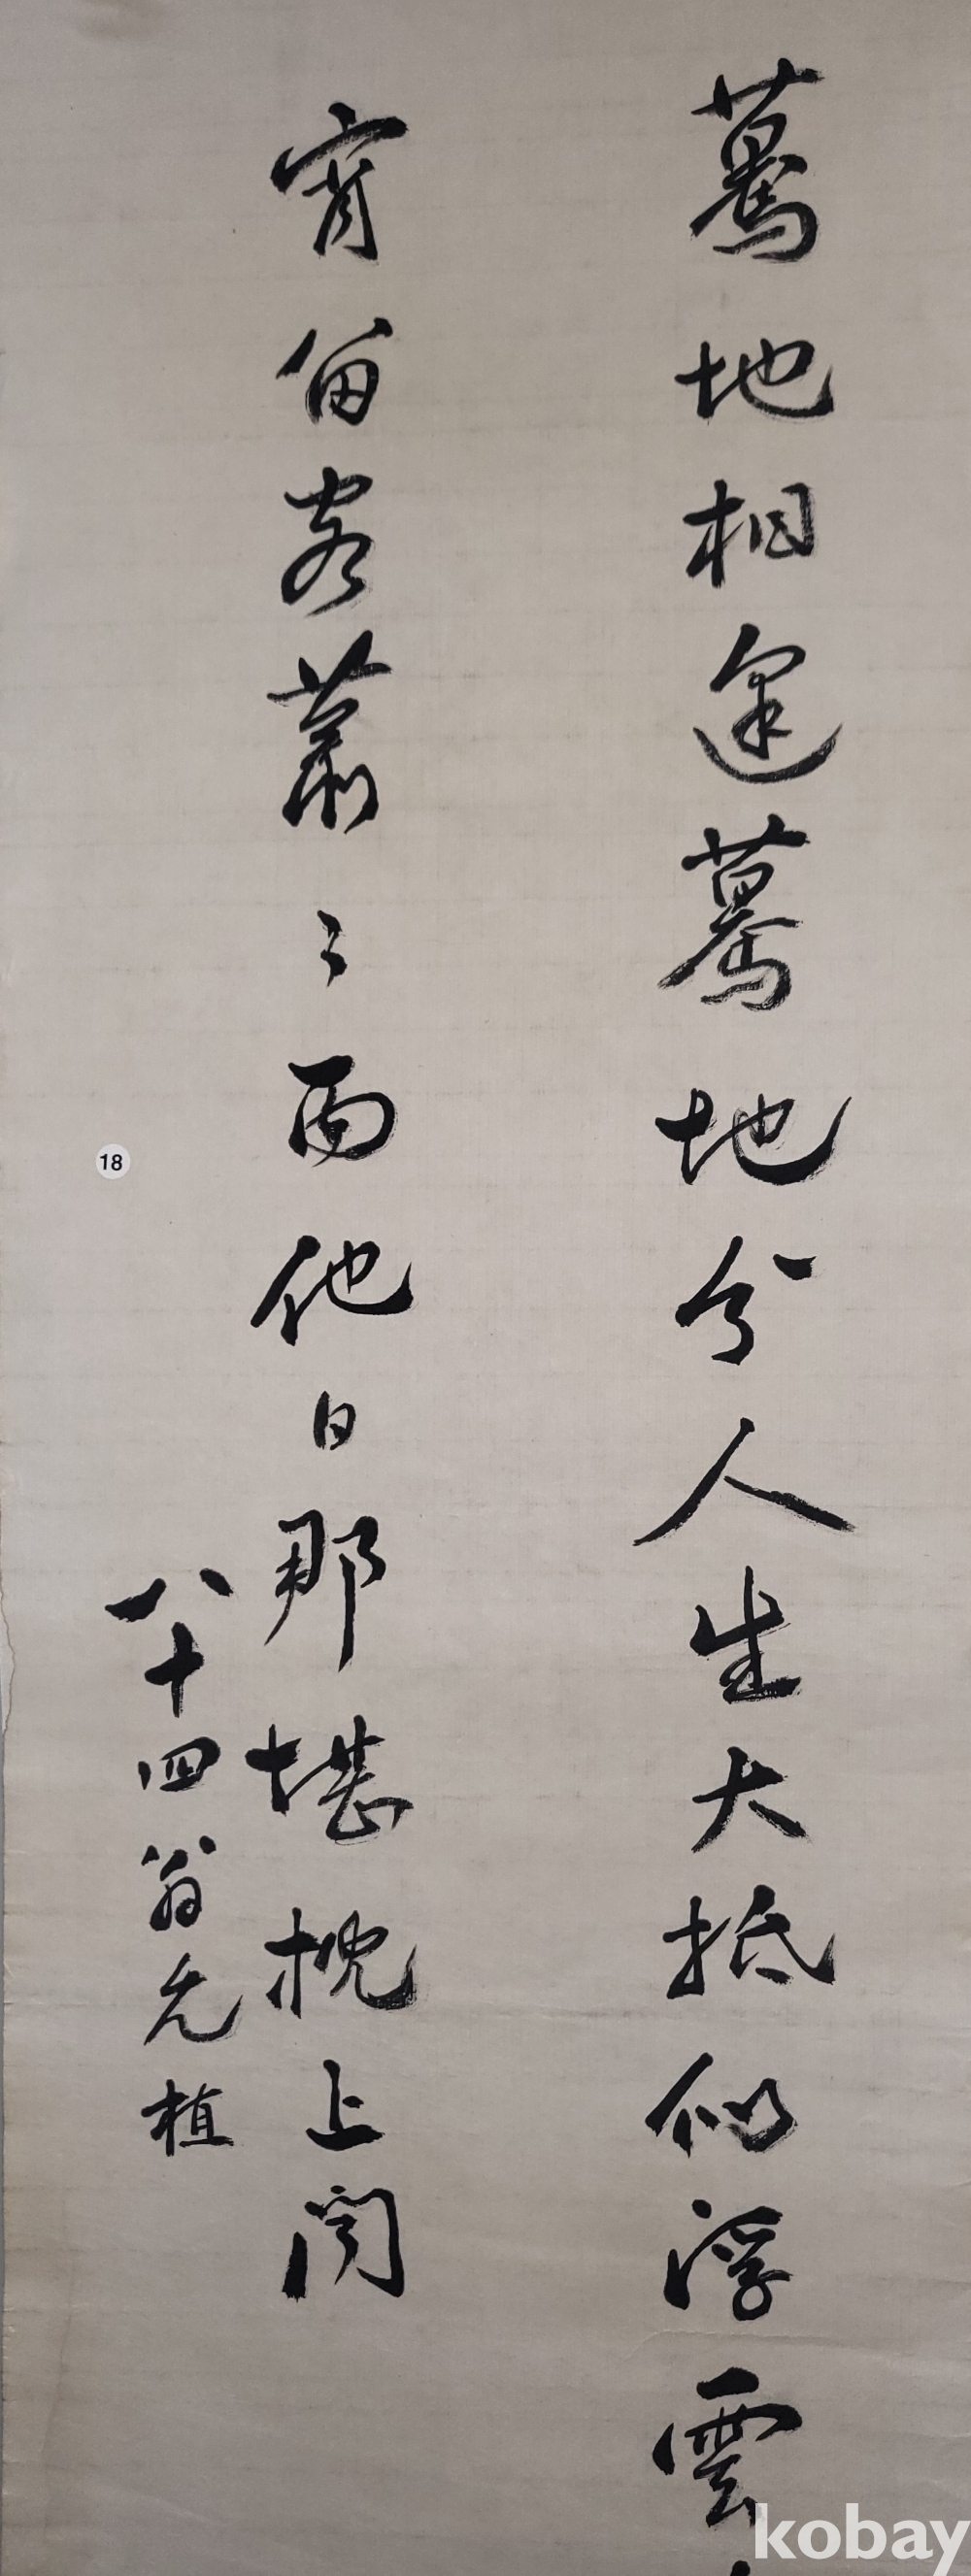 驀地相逢驀地分人生大抵似浮雲
宵留客蕭々雨他日那堪枕上聞
八十四翁允植
18
kobay